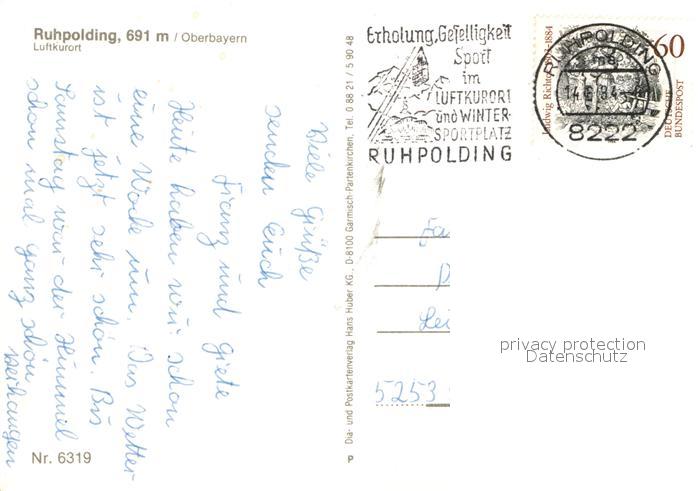 Ruhpolding, 691 m / Oberbayern
Luftkurort
Viele Grüße
senden Euch
Franz und Grete
Heute haben wir schon
eine Woche um. Das Wetter
ist jetzt sehr schön. Bis
Samstag war der Himmel
schon mal ganz schön
verhangen
Nr. 6319
Dia- und Postkartenverlag Hans Huber KG., D-8100 Garmisch-Partenkirchen, Tel. 0 88 21 / 5 90 48
P
Erholung, Geselligkeit
Sport
im
LUFTKURORT
und WINTER-
SPORTPLATZ
RUHPOLDING
RUHPOLDING
8222
Ludwig Richter 1803-1884
60
DEUTSCHE
BUNDESPOST
Fa
Lei
5253
privacy protection
Datenschutz